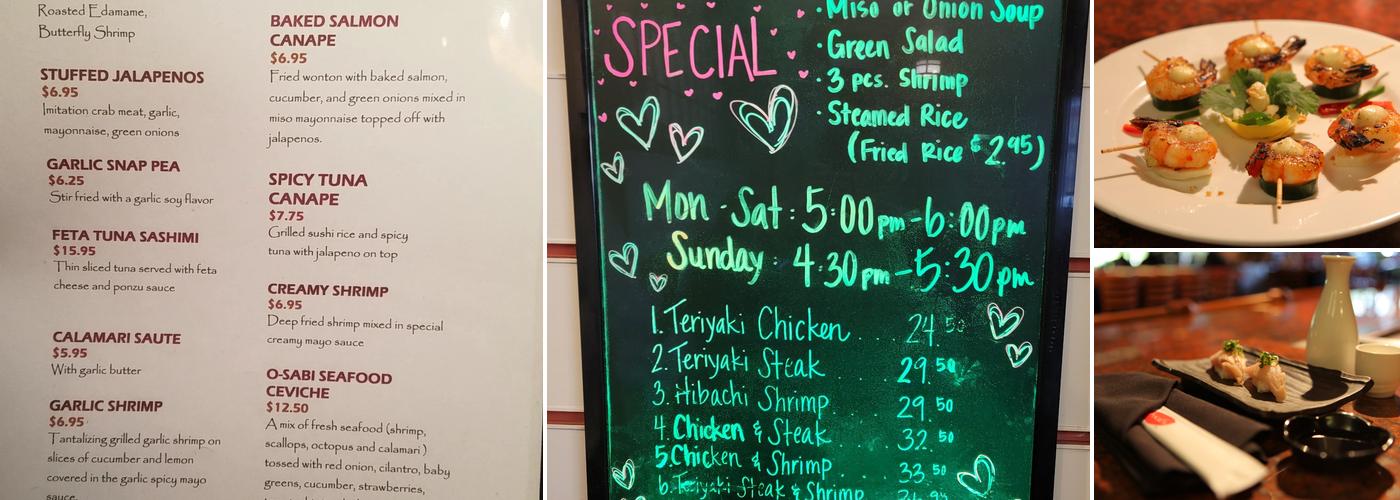 Roasted Edamame,
Butterfly Shrimp
STUFFED JALAPENOS
$6.95
Imitation crab meat, garlic,
mayonnaise, green onions
GARLIC SNAP PEA
$6.25
Stir fried with a garlic soy flavor
FETA TUNA SASHIMI
$15.95
Thin sliced tuna served with feta
cheese and ponzu sauce
CALAMARI SAUTE
$5.95
With garlic butter
GARLIC SHRIMP
$6.95
Tantalizing grilled garlic shrimp on
slices of cucumber and lemon
covered in the garlic spicy mayo
sauce.
BAKED SALMON
CANAPE
$6.95
Fried wonton with baked salmon,
cucumber, and green onions mixed in
miso mayonnaise topped off with
jalapenos.
SPICY TUNA
CANAPE
$7.75
Grilled sushi rice and spicy
tuna with jalapeno on top
CREAMY SHRIMP
$6.95
Deep fried shrimp mixed in special
creamy mayo sauce
O-SABI SEAFOOD
CEVICHE
$12.50
A mix of fresh seafood (shrimp,
scallops, octopus and calamari )
tossed with red onion, cilantro, baby
greens, cucumber, strawberries,
SPECIAL
• Miso or Onion Soup
• Green Salad
• 3 pcs. Shrimp
• Steamed Rice
(Fried Rice $2.95)
Mon - Sat : 5:00pm - 6:00pm
Sunday : 4:30pm - 5:30pm
1. Teriyaki Chicken . . . 24.50
2. Teriyaki Steak . . . 29.50
3. Hibachi Shrimp . . . 29.50
4. Chicken & Steak . . . 32.50
5. Chicken & Shrimp . . . 33.50
6. Teriyaki Steak & Shrimp